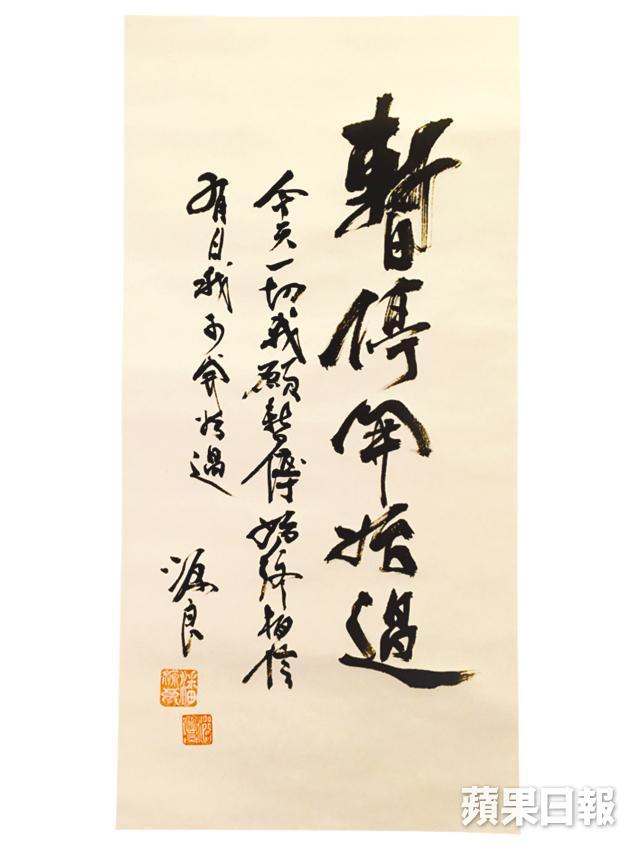 暫停開始過
今天一切我願暫停始終相信
有日我可開始過
源良
蘋果日報